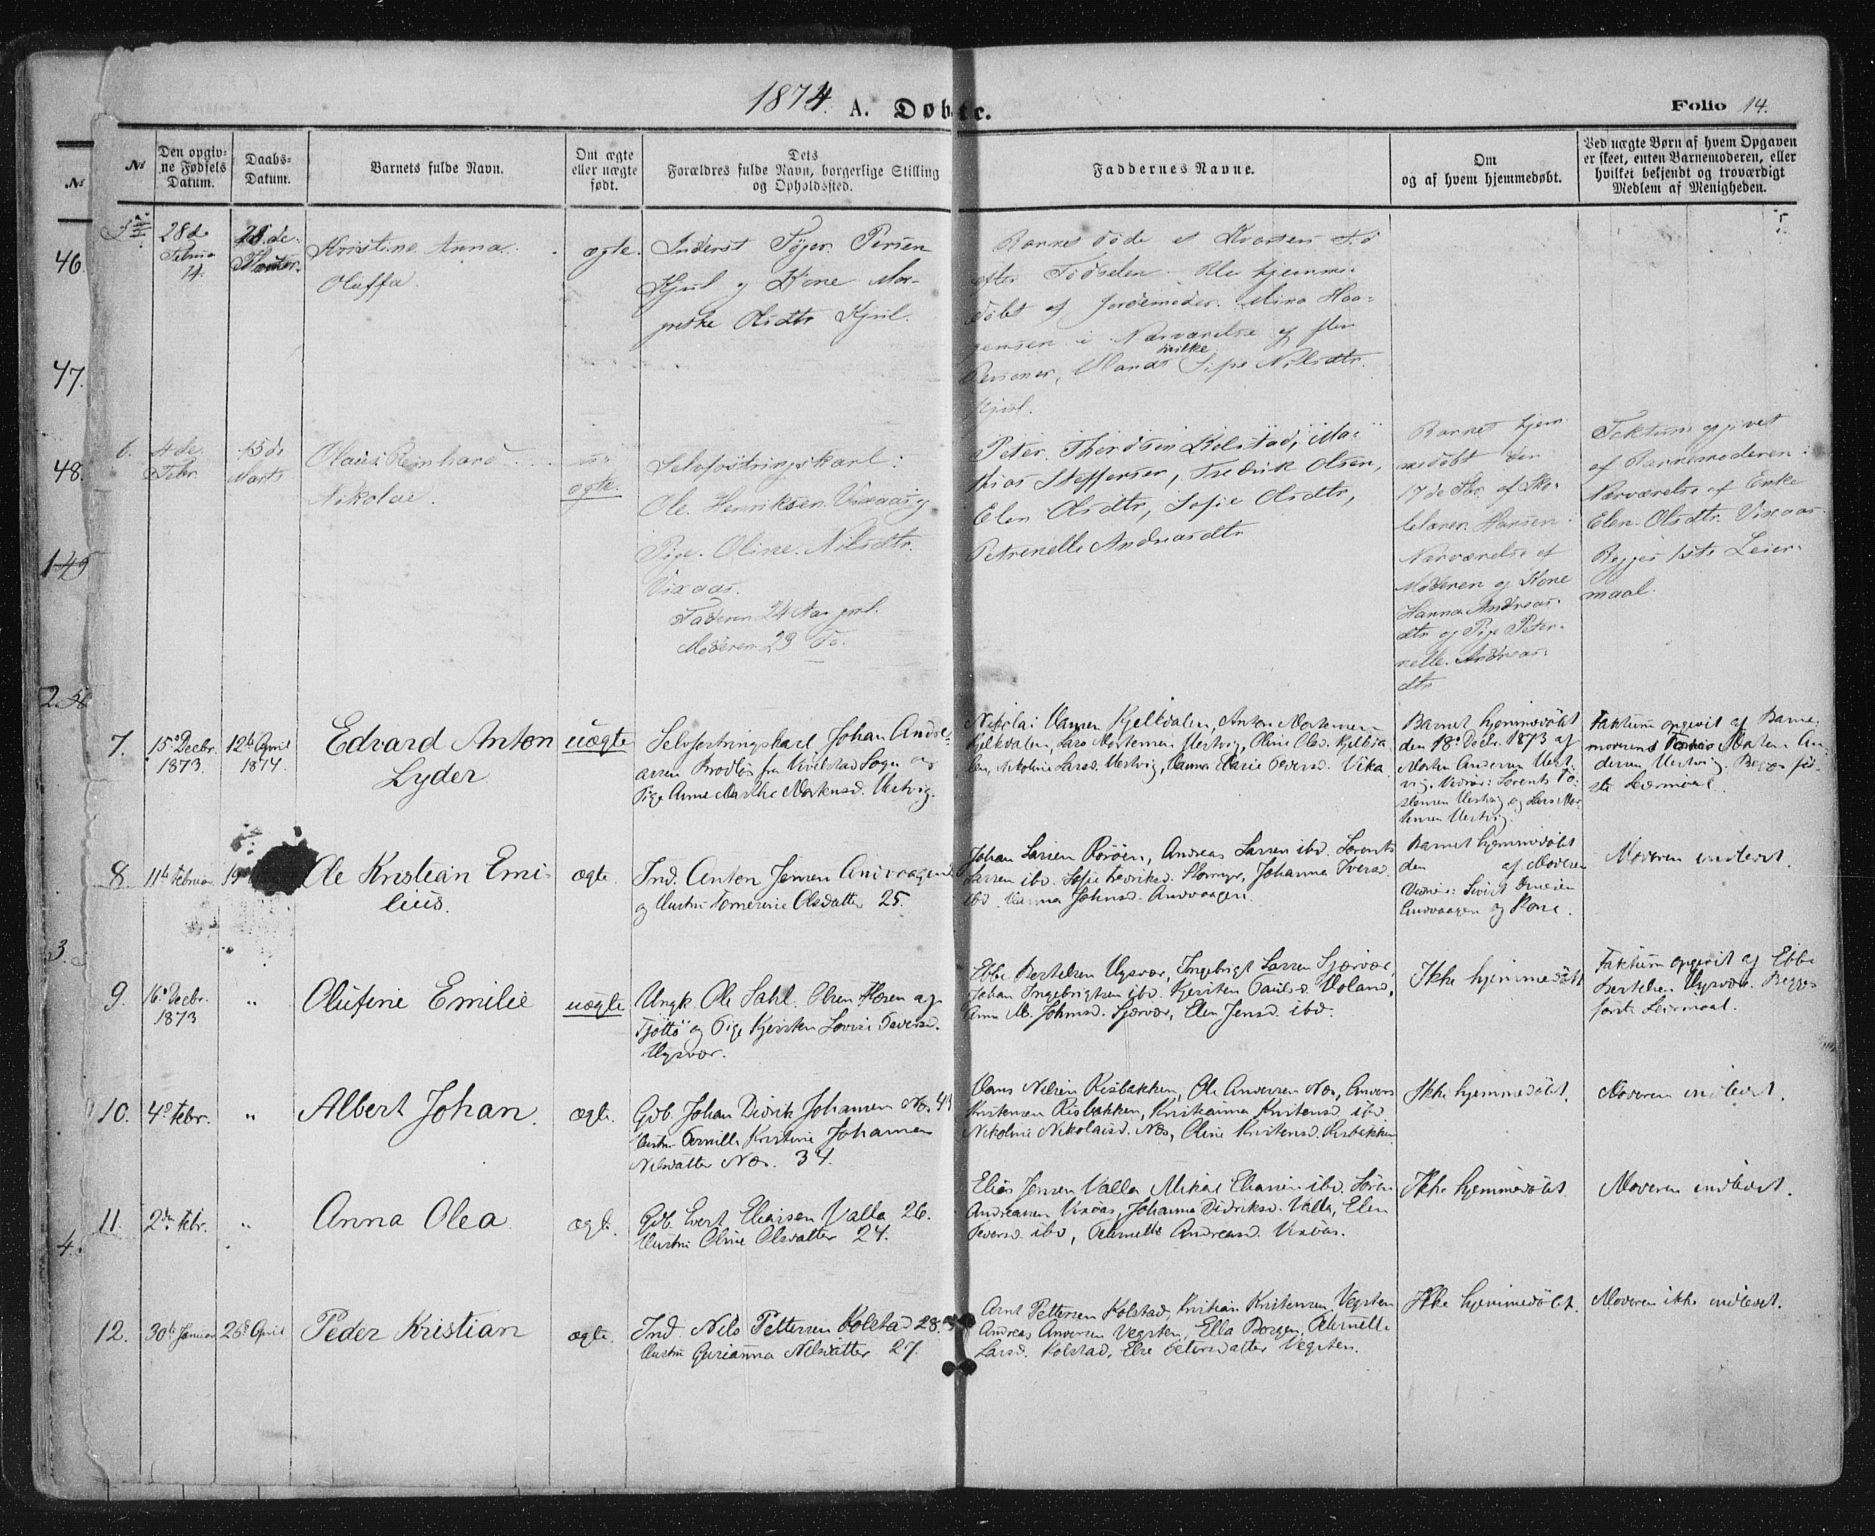 1874. A. Døbte. Folio 14.
No
Den opgiv-
ne Fødsels
Datum.
Daabs-
Datum.
Barnets fulde Navn.
Om ægte
eller uægte
født.
Dets
Forældres fulde Navn, borgerlige Stilling
og Opholdssted.
Faddernes Navne.
Om
og af hvem hjemmedøbt.
Ved uægte Børn af hvem Opgaven
er skeet, enten Barnemoderen, eller
hvilket bekjendt og troværdigt
Medlem af Menigheden.
No
46.
47.
48.
3.
4.
28de
Kristine Anna
Oluffa.
ægte.
Inderst
Kjul og Kone Mar-
grethe Olsdtr Kjul.
Barnet døde et
efter Fødselen. Blev hjemme-
døbt af Jordemoder. Mina Haa-
gensen i Nærværelse af flere
Personer, blandt hvilke Pige Nilsdtr.
6.
4de
Febr.
15de
Marts
Olaus Reinhard
Nikolai.
ægte.
Selvfostringskarl
Ole Henriksen Vixaas og
Pige. Oline. Nilsdtr.
Vixaas.
Faderen 24 Aar gml.
Moderen 23 Do.
Peter Thordsen Kolstad, Ma-
thias Steffensen, Fredrik Olsen,
Elen Olsdtr, Sofie Olsdtr,
Petrenelle Andreasdtr
Barnet hjem
medøbt den
17de Fbr. af Sko-
lelærer Hansen.
Nærværelse af
Moderen og Kone
Hanna Andreas-
dtr og Pige Peter-
nelle Andreas-
dtr
Faktum opgivet
af Barnemoderen i
Nærværelse af Enke
Elen Olsdtr. Vixaas.
Begges 1ste Leier-
maal.
7.
15de Decbr.
1873.
12te April
1874.
Edvard Anton
Lyder
uægte
Selvfostringskarl Johan Andre-
asen Brodløs fra Vivelstad Sogn og
Pige Anne Marthe Mortensd. Hestvig.
Nikolai Hansen Kjelkdalen, Anton Mortensen
Kjelkdalen, Lars Mortensen Hestvig, Oline Olsd. Kjelkda-
len, Nikoline Larsd. Hestvig, Hanna Marie Iversd. Vika
Barnet hjemmedøbt
den 18de Decbr. 1873 af
Morten Andersen Hest-
vig. Vidner: Lorents To-
stensen Hestvig og Lars Mor-
tensen Hestvig.
Faktum opgivet af Barne-
moderens Fader Morten An-
dersen Hestvig. Begges før-
ste Leiermaal.
8.
11te Februar
19
Ole Kristian Emi-
lius.
ægte.
Ind. Anton Jensen Andvaagen
og Hustru Tomerine Olsdatter 25.
Johan Larsen Rorøen, Andreas Larsen ibd. Lorents
Larsen ibd. Sofie Johanna Iversd.
ibd. Johnsd. Andvaagen.
Barnet hjemmedøbt
den af Moderen
Vidner: Sivert
Andvaagen og Kone.
Moderen indledet.
9.
16de Decbr.
1873
"
Olufine Emilie
uægte
Ungk. Ole Dahl Olsen Horen ag
Tjøttø og Pige Kjersten Lovise Iversd.
Hysvær.
Ebbe Bertelsen Hysvær, Ingebrigt Larsen Sjærvær,
Johan Ingebrigtsen ibd. Kjersten Paulsd. Holand,
Anne M. Johnsd. Sjærvær, Elen Jensd. ibd.
Ikke hjemmedøbt
Faktum opgivet af Ebbe
Bertelsen Hysvær. Begges
første Leiermaal.
10.
4de Febr.
"
Albert Johan.
ægte.
Gdb. Johan Didrik Johansen Næs 43
Hustru Pernille Kristine Johanna
Nilsdatter Næs. 34.
Hans Nilsen Risbakken, Ole Andersen Næs, Anders
Kristensen Risbakken, Kristianna Kristensd. ibd.
Nikoline Nikolaisd. Næs, Oline Kristensd. Risbakken
Ikke hjemmedøbt.
Moderen indledet.
11.
2den Febr.
"
Anna Olea
ægte.
Gdb. Evert Eliassen Valla 26.
Hustru Oline Olsdatter 24.
Elias Jensen Valla, Mikal Eliassen ibd. Søren
Andreassen Vixaas, Johanna Didriksd. Valla, Elen
Iversd. ibd, Pernelle Andreasd. Vixaas.
Ikke hjemmedøbt.
Moderen indledet.
12.
30te Januar
26de April
Peder Kristian
ægte.
Ind. Nils Pettersen Kolstad 28.
Hustru Gurianna Nilsdatter 27.
Arnt Pettersen Kolstad, Kristian Kristensen Vegsten
Andreas Andersen Vegsten, Ella Borgen, Pernelle
Larsd. Kolstad, Else Petersdatter Vegsten.
Ikke hjemmedøbt.
Moderen ikke indledet.